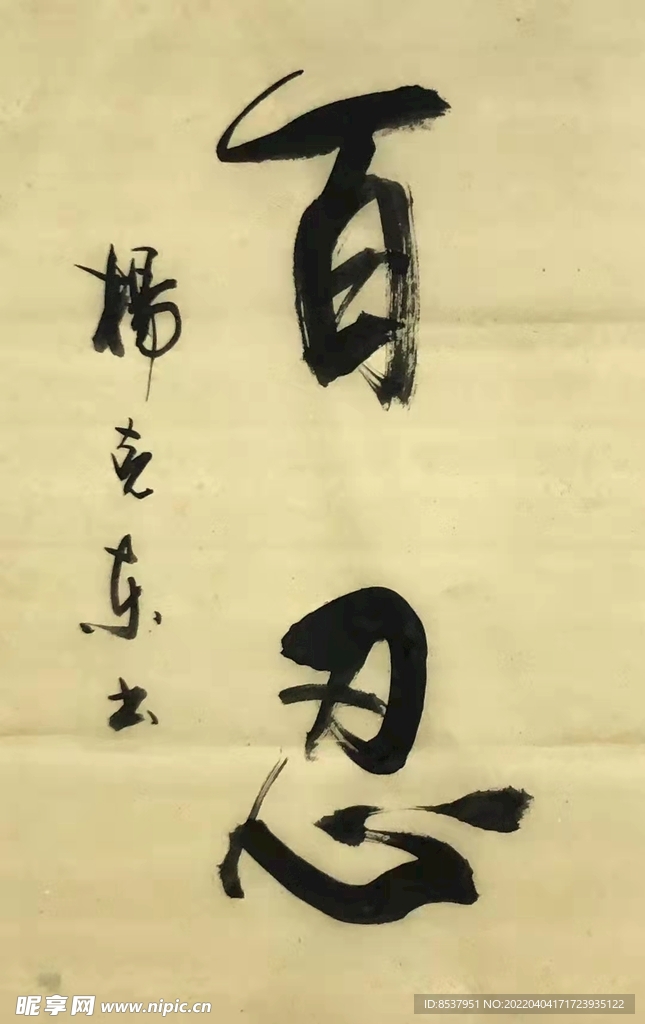 百忍
楊克东书
昵享网 www.nipic.cn
ID:8537951 NO:20220404171723935122